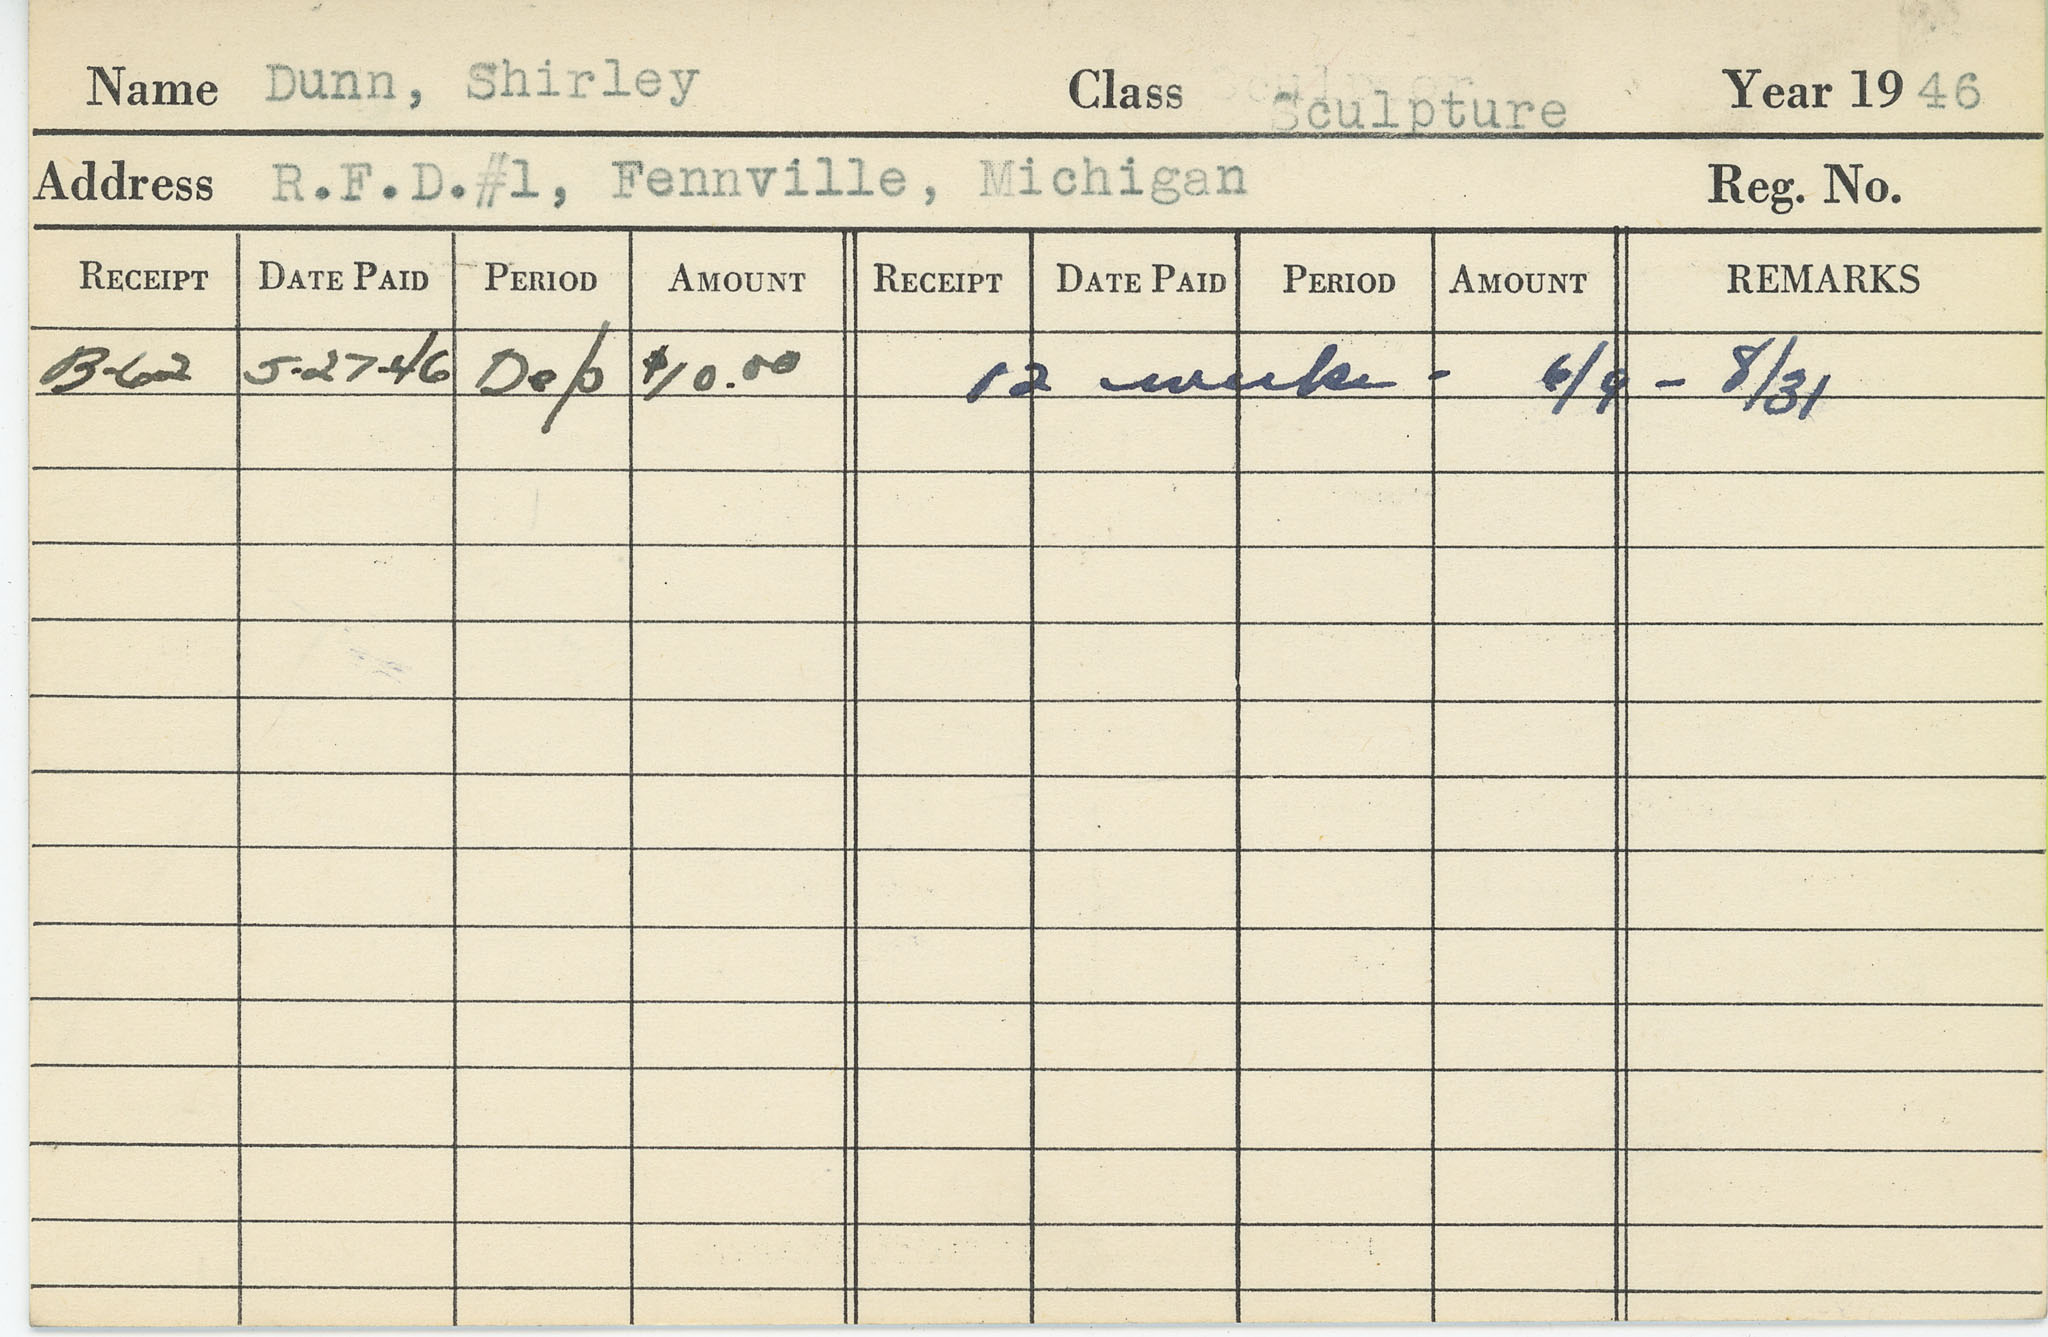 Name Dunn, Shirley Class Sculpture Year 1946
Address R.F.D.#1, Fennville, Michigan Reg. No.
RECEIPT DATE PAID PERIOD AMOUNT RECEIPT DATE PAID PERIOD AMOUNT REMARKS
B-602 5-27-46 Dep $10.00 12 weeks - 6/9 - 8/31